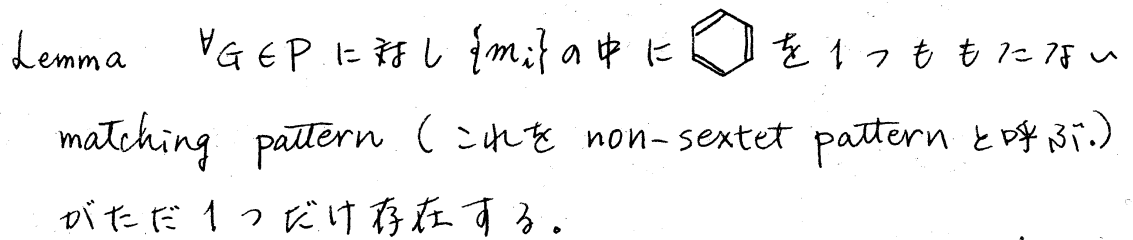 Lemma ∀G∈P に対し {mi} の中に を1つももたない
matching pattern (これを non-sextet pattern と呼ぶ.)
がただ1つだけ存在する。